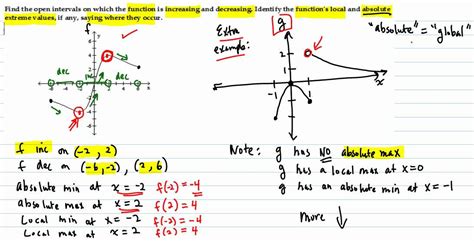 Find the open intervals on which the function is increasing and decreasing. Identify the function's local and absolute
extreme values, if any, saying where they occur.
"absolute" = "global"
f
g
Extra
example:
dec inc dec
2
1
-1 1
x
f inc on (-2, 2)
f dec on (-6,-2), (2, 6)
absolute min at x=-2 f(-2) = -4
absolute max at x=2 f(2) = 4
Local min at x=-2 f(-2) = -4
Local max at x=2 f(2) = 4
Note: g has NO absolute max
g has a local max at x=0
g has an absolute min at x=-1
more